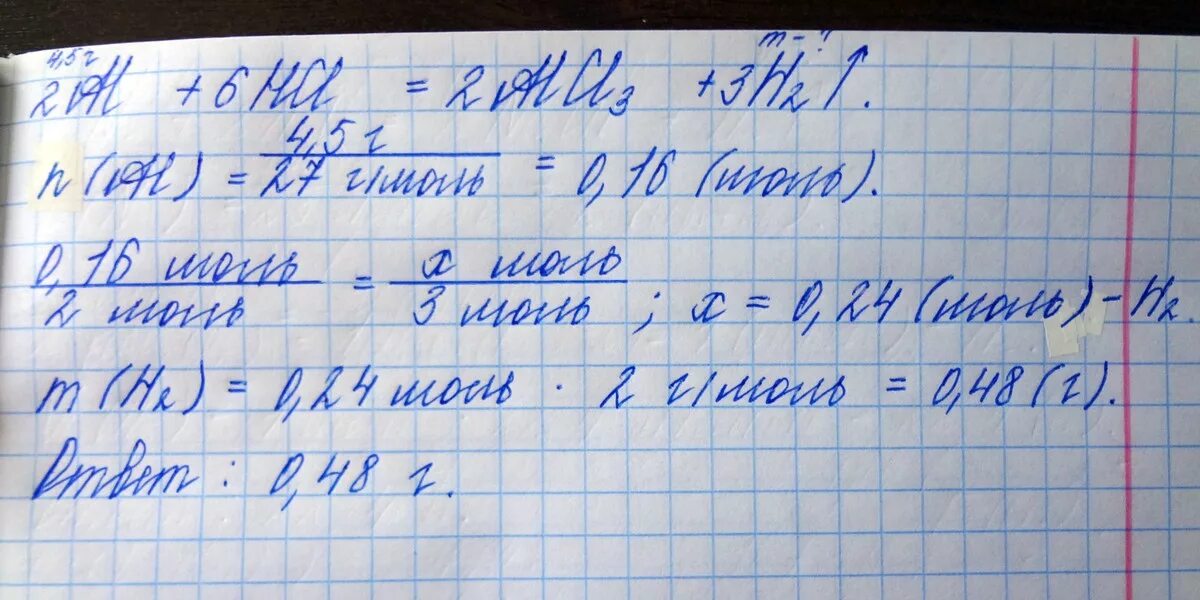 4,5 г m - ?
2Al + 6HCl = 2AlCl₃ + 3H₂↑.
n(Al) = 4,5 г / 27 г/моль = 0,16 (моль).
0,16 моль / 2 моль = x моль / 3 моль ; x = 0,24 (моль) - H₂.
m(H₂) = 0,24 моль · 2 г/моль = 0,48 (г).
Ответ : 0,48 г.